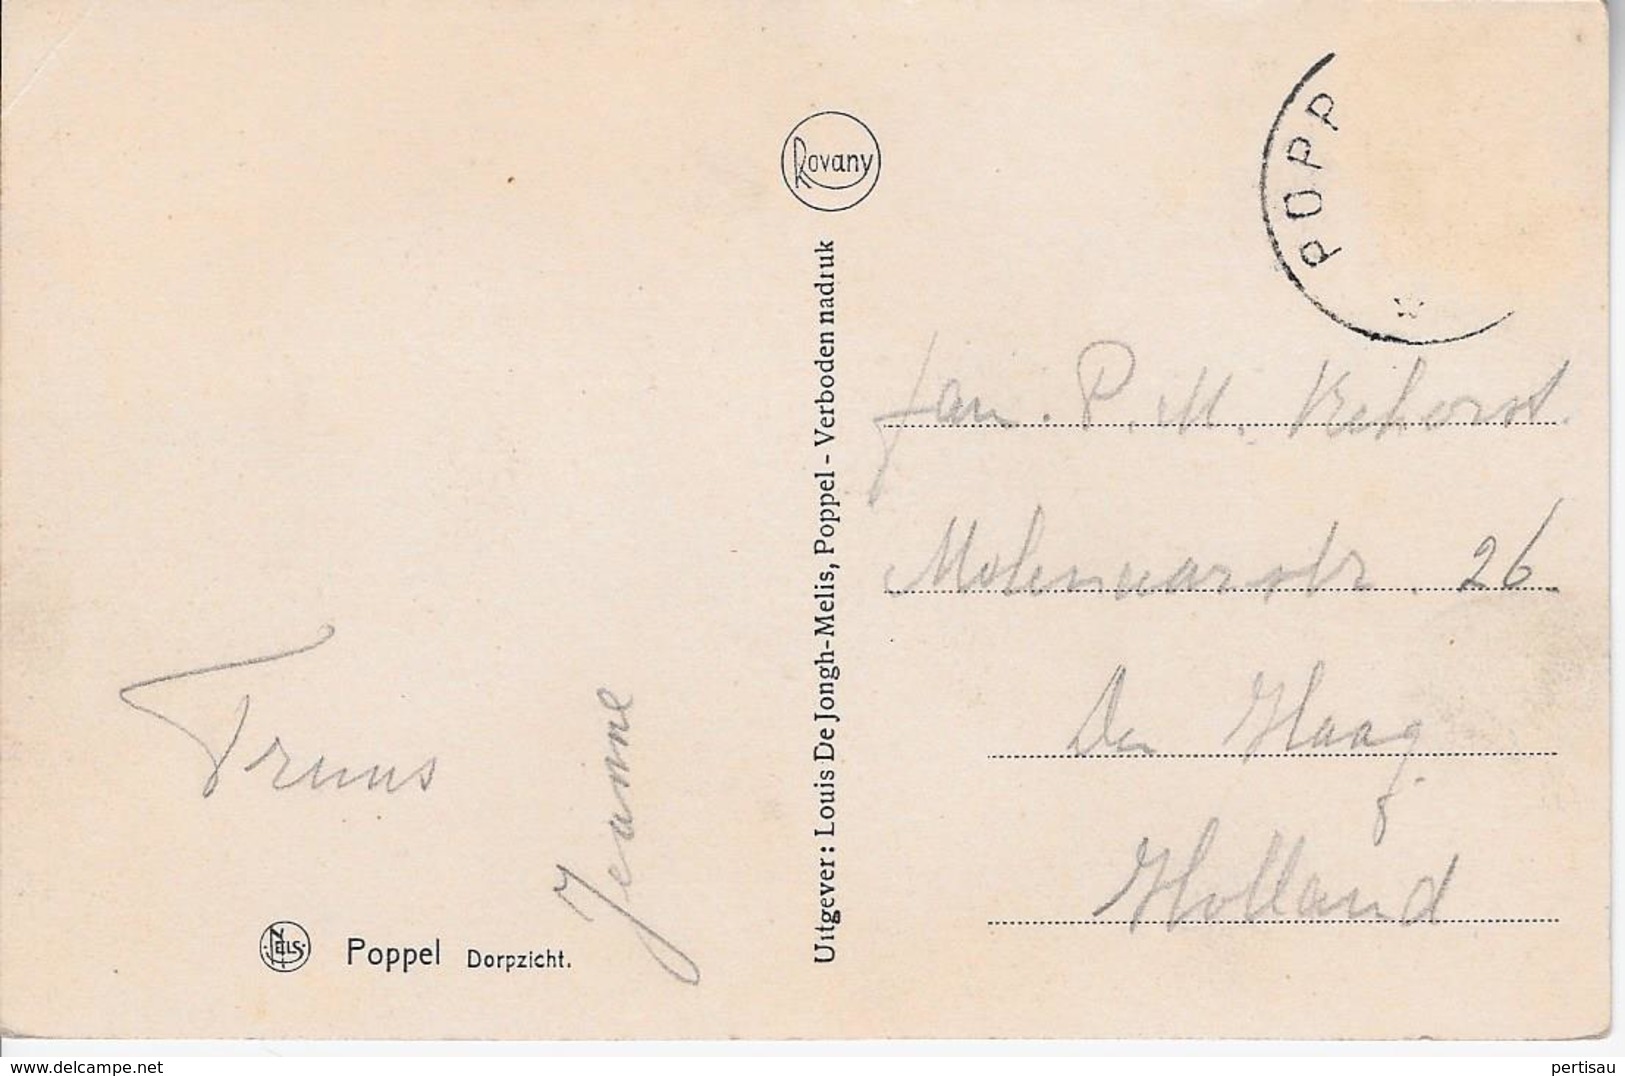 Rovany
POPP
Jan. P. M.
Molenaarstr. 26
Den Haag
Holland
Truus
Jeanne
Uitgever: Louis De Jongh-Melis, Poppel - Verboden nadruk
NELS
Poppel Dorpzicht.
www.delcampe.net
pertisau